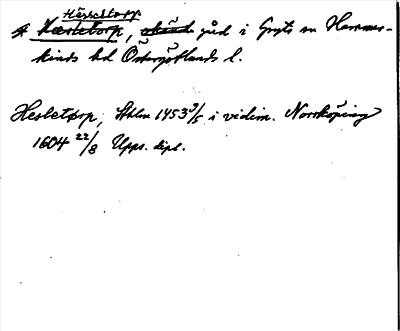 Hässeltorp
* Hæsletorp, okänd gård i Gryts sn Hammar-
kinds hd Östergötlands l.
Hesletørp, Sthlm 1453 3/5 i vidim. Norrköping
1604 22/8 Upps. dipl.